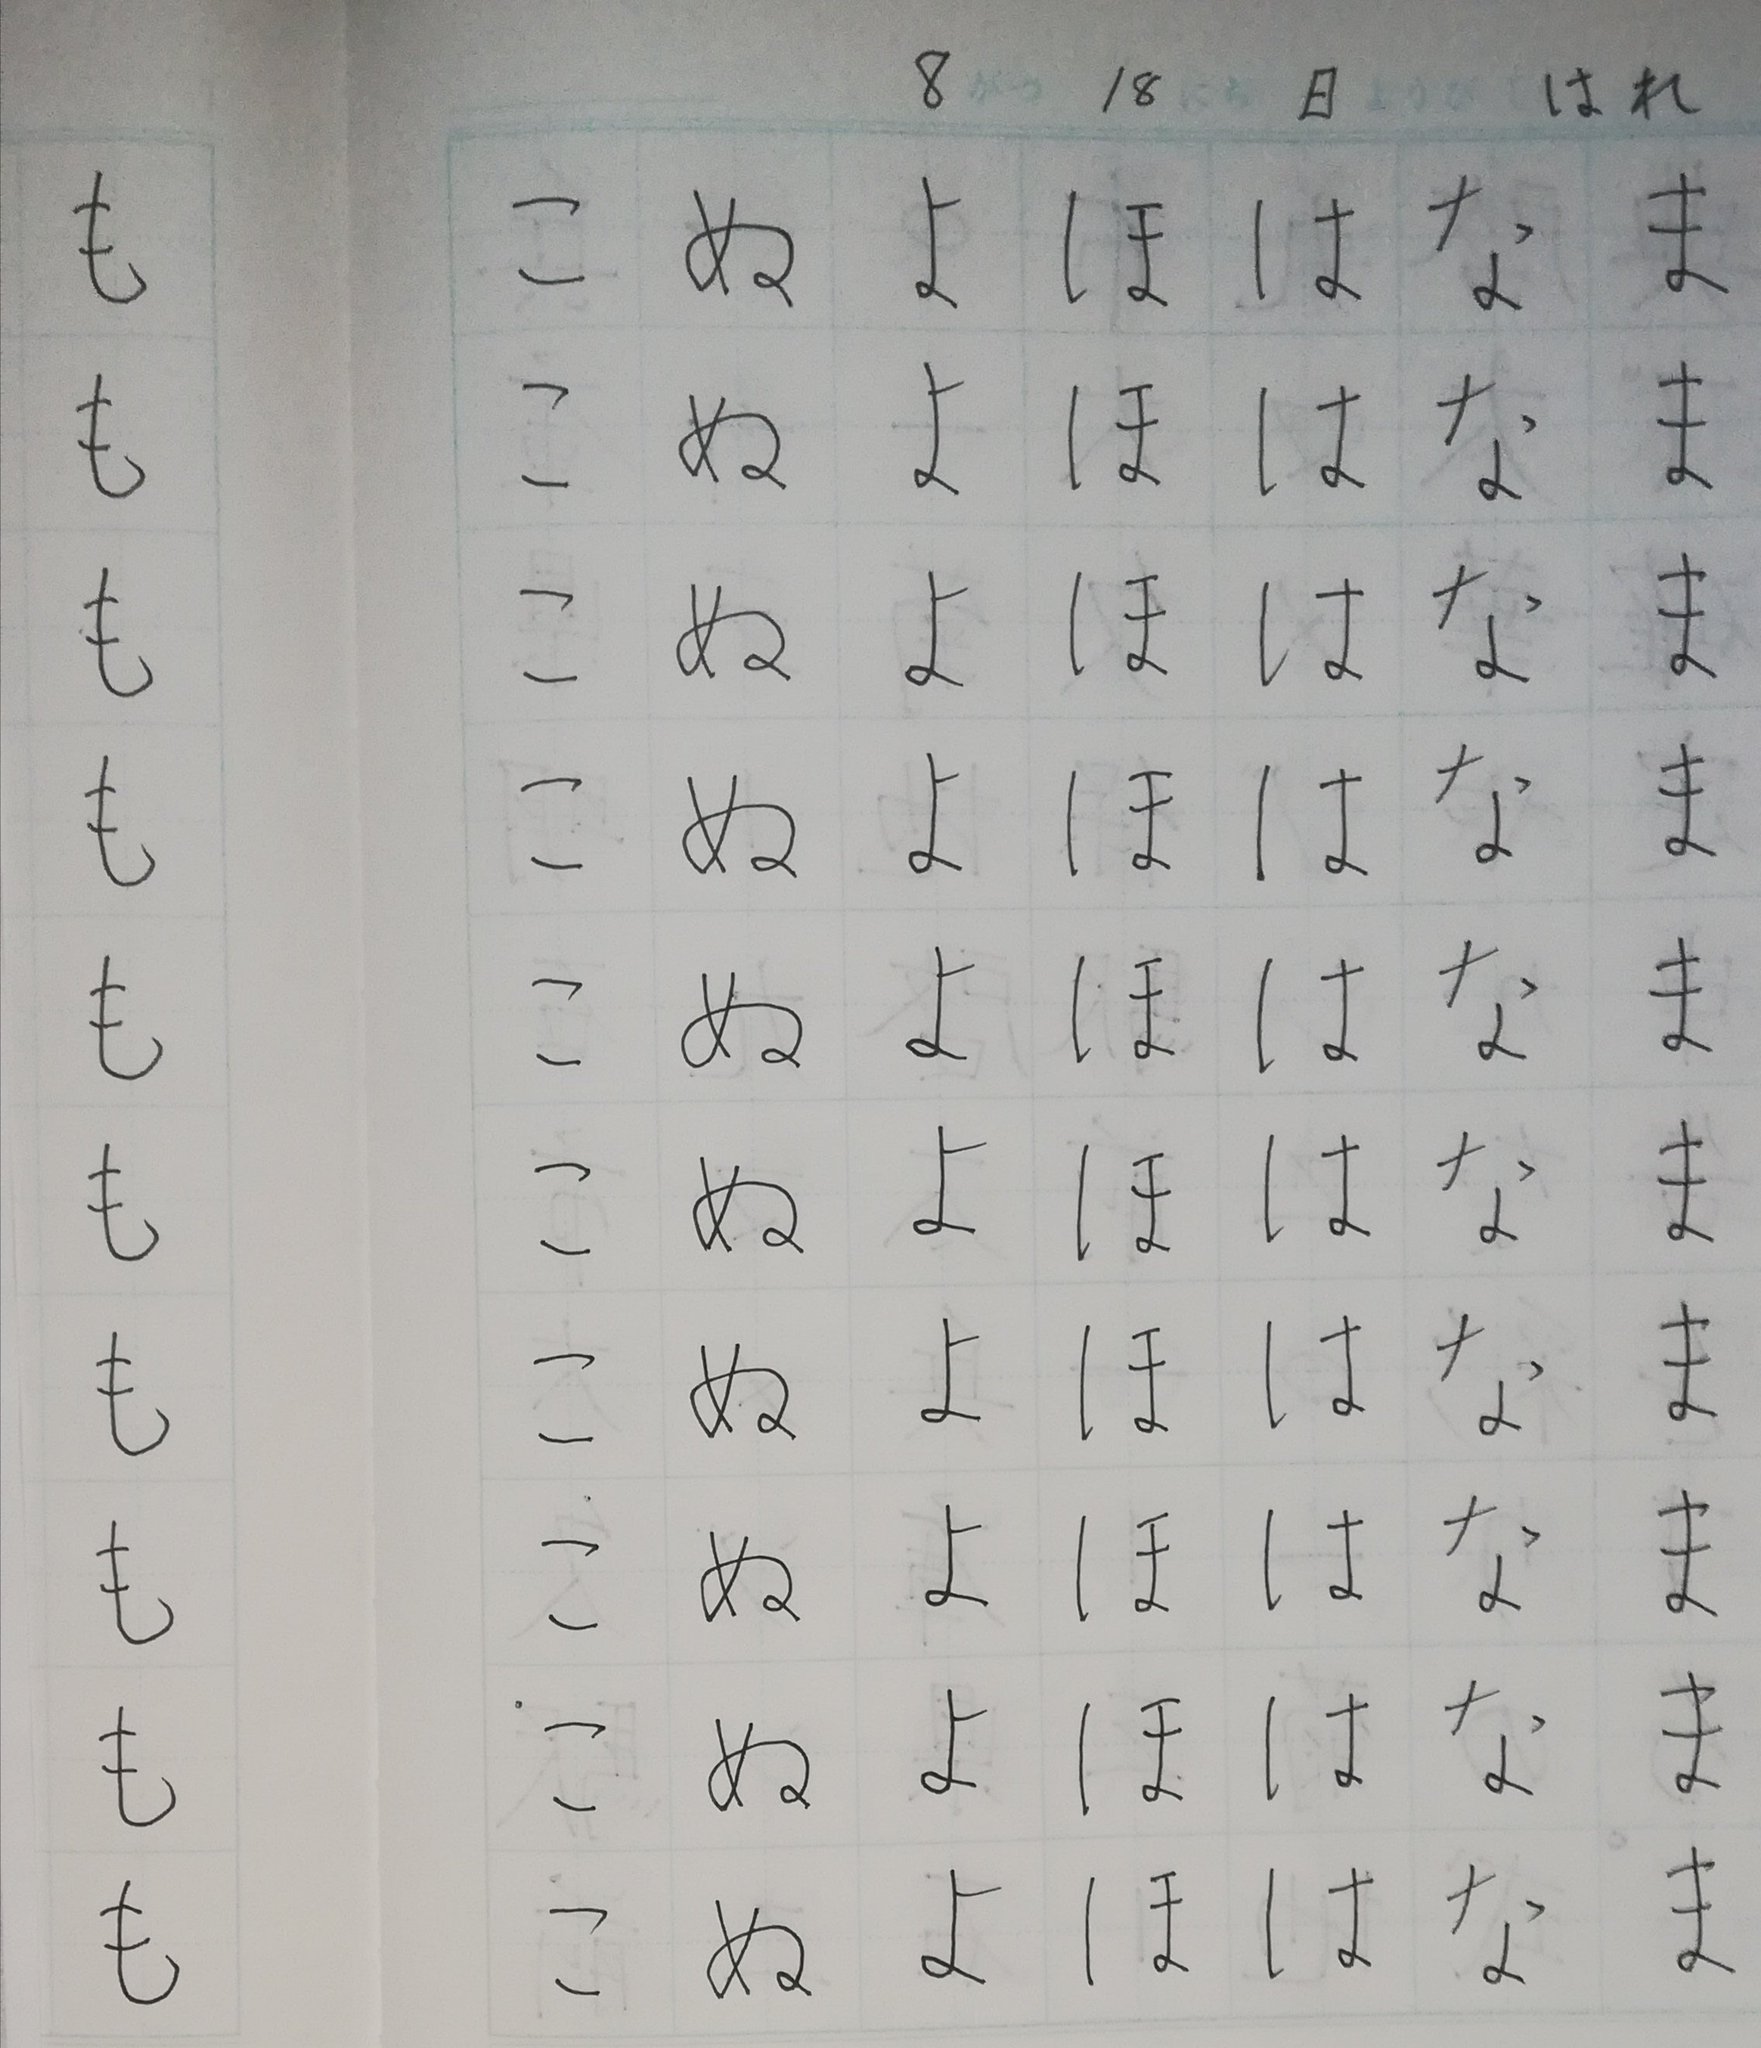 8 18 日 はれ
まままままままままま
なななななななななな
はははははははははは
ほほほほほほほほほほ
よよよよよよよよよよ
ぬぬぬぬぬぬぬぬぬぬ
ここここここここここ
もももももももももも